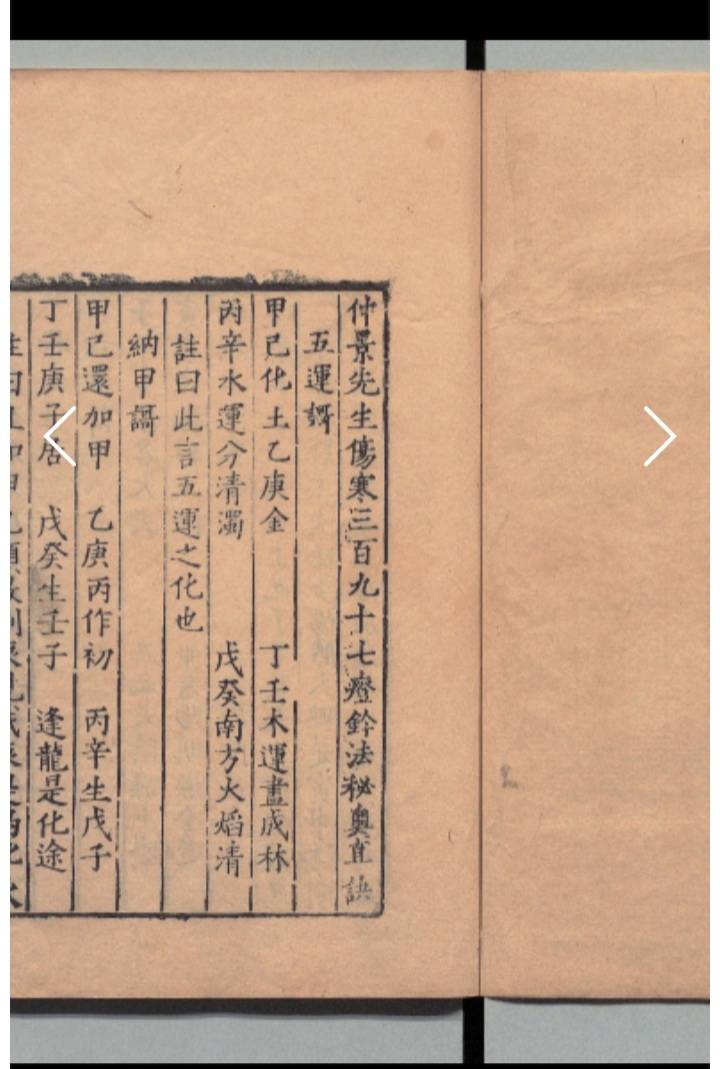 仲景先生傷寒三百九十七癥鈐法秘奧直訣
五運謌
甲己化土乙庚金　丁壬木運盡成林
丙辛水運分清濁　戊癸南方火焰清
註曰此言五運之化也
納甲謌
甲己還加甲　乙庚丙作初　丙辛生戊子
丁壬庚子居　戊癸生壬子　逢龍是化途